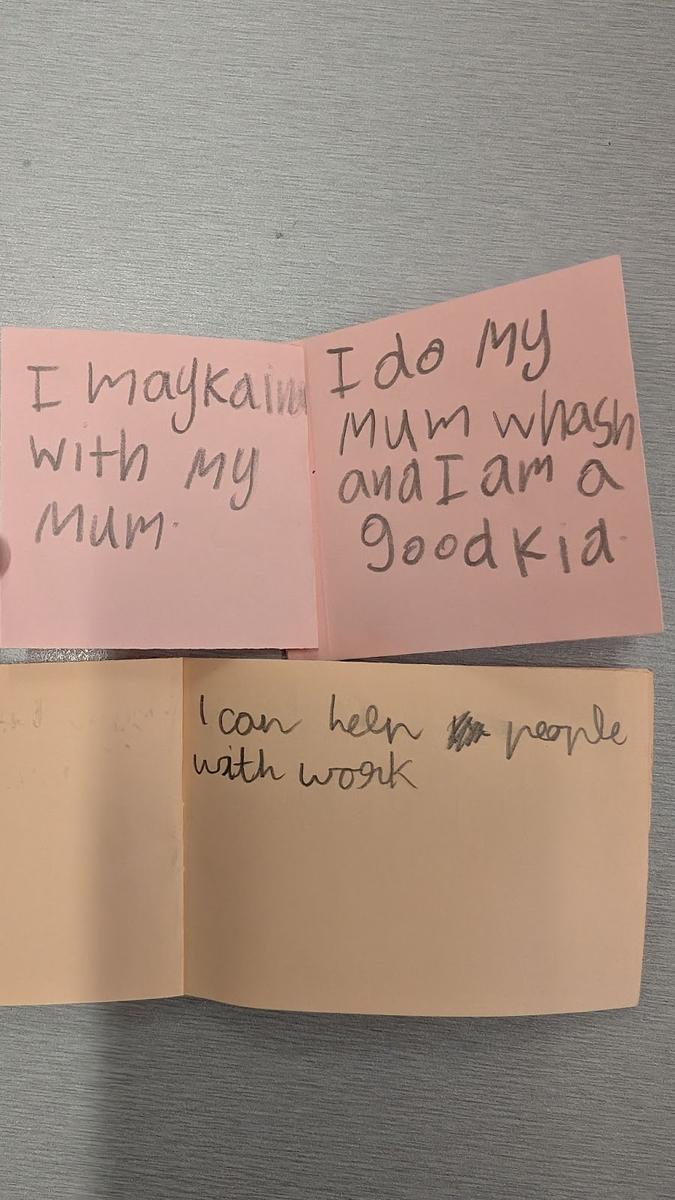 I maykaim
with My
Mum.
I do My
Mum whash
and I am a
good kid.
I can help people
with work